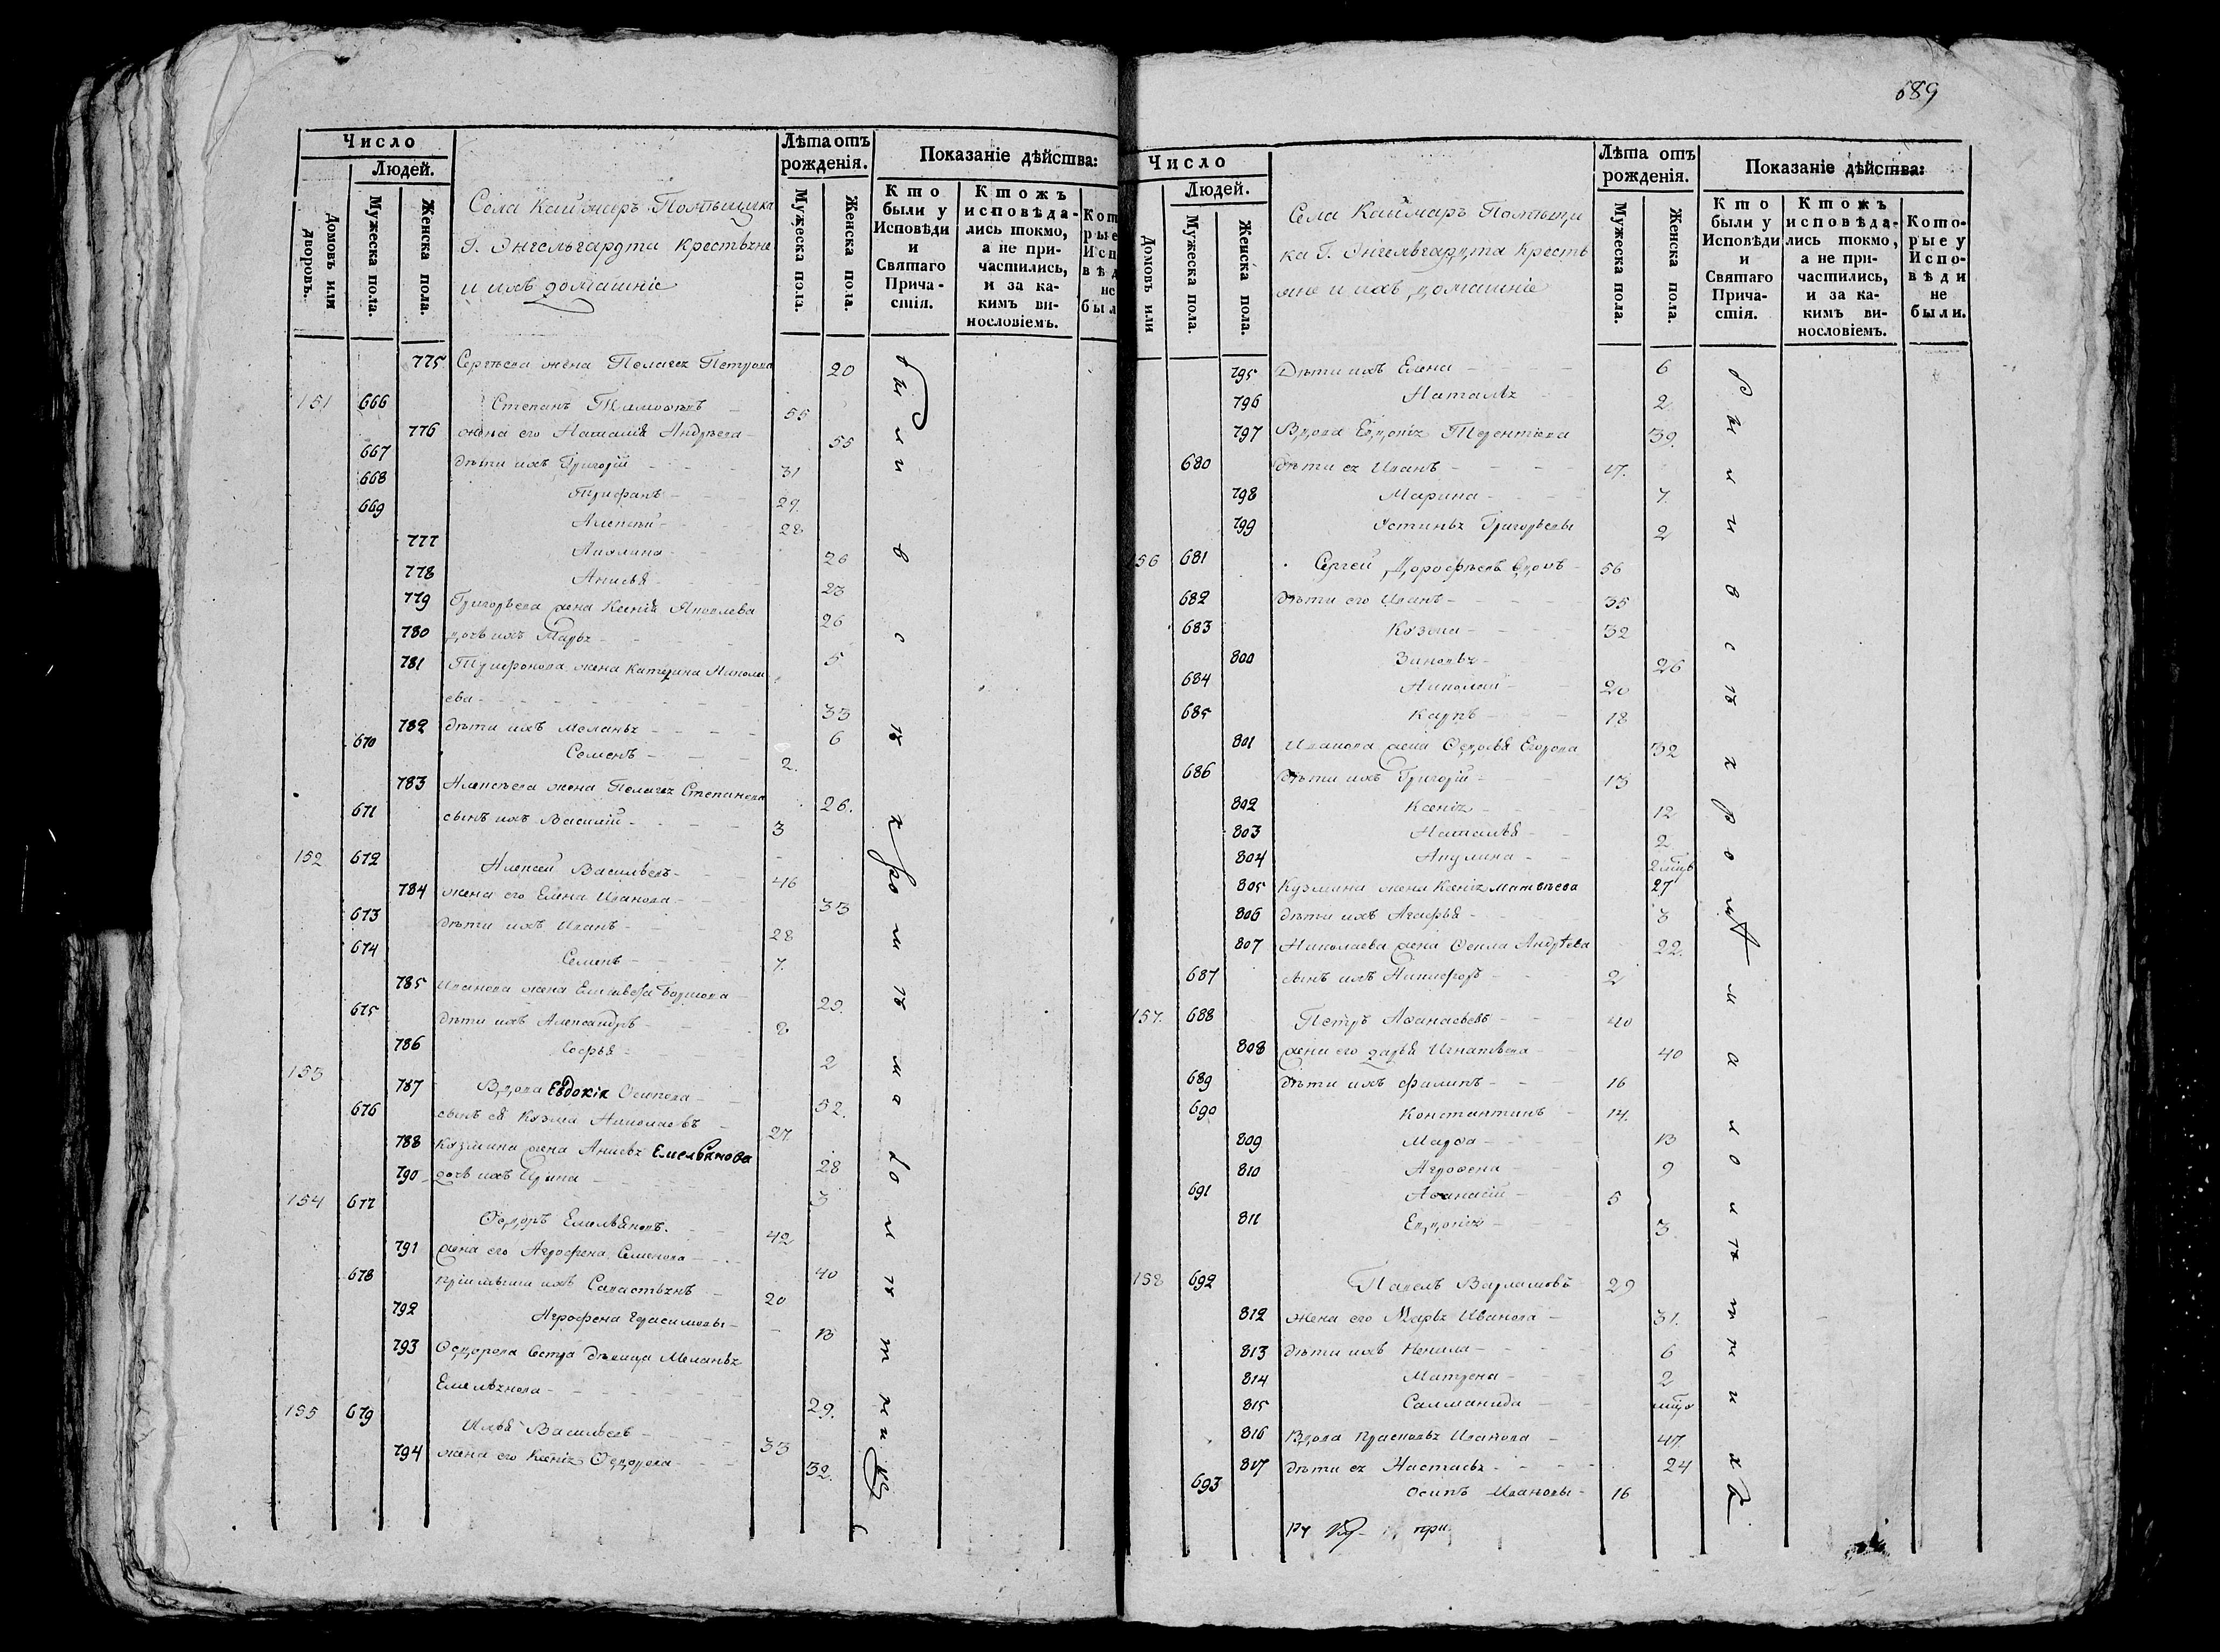 689
Число
Людей.
Домовъ или дворовъ.
Мужеска пола.
Женска пола.
Села Каймаръ Помѣщика
Г. Энгельгардта крестьяне
и ихъ домашніе
Лѣта отъ рожденія.
Мужеска пола.
Женска пола.
Показаніе дѣйства:
Кто были у Исповѣди и Святаго Причастія.
Ктожъ исповѣдались токмо, а не причастились, и за какимъ винословіемъ.
775 Сергѣева жена Пелагея Петрова 20
151 666 Степанъ Тимофѣевъ 55
776 жена его Наталія Андрѣева 55
667 дѣти ихъ Григорій 31
668 Трифанъ 29.
669 Алексѣй 28
777 Акилина 26
778 Анисья 23
779 Григорьева жена Ксенія Яковлева 26
780 дочь ихъ Марья 5
781 Трифонова жена Катерина Никола
ева 33
782 дѣти ихъ Меланья 6
670 Семенъ 2.
783 Алексѣева жена Пелагея Степанова 26.
671 сынъ ихъ Василій 3
152 672 Алексей Васильевъ 46
784 жена его Елена Иванова 33
673 дѣти ихъ Иванъ 28
674 Семенъ 7.
785 Иванова жена Елисавета 29.
675 дѣти ихъ Александръ
786 Софья 2
153 787 Вдова Евдокія Осипова 52.
676 сынъ ея Козма Николаевъ 27.
788 Козмина жена Анисья Емельянова 28
790 дочь ихъ Ирина 3
154 677 Ѳедоръ Емельяновъ 42
791 жена его Агрофена Семенова 40
678 пріимыши ихъ Савастьянъ 20
792 Агрофена Герасимовы 13
793 Ѳедорова сестра дѣвица Меланья
Емельянова 29.
155 679 Илья Васильевъ 33
794 жена его Ксенія Ѳедорова 32.
были в с ѣ х ро м ѣ м а л о л ѣ т н и хъ
Число
Людей.
Домовъ или
Мужеска пола.
Женска пола.
Села Каймаръ Помѣщи
ка Г. Энгельгардта кресть
яне и ихъ домашніе
Лѣта отъ рожденія.
Мужеска пола.
Женска пола.
Показаніе дѣйства:
Кто были у Исповѣди и Святаго Причастія.
Ктожъ исповѣдались токмо, а не причастились, и за какимъ винословіемъ.
Которые у Исповѣди не были.
795 Дѣти ихъ Елена 6
796 Наталья 2
797 Вдова Евдокія Терентіева 39.
680 дѣти ея Иванъ 17.
798 Марина 7.
799 Устинья Григорьевы 2
156 681 Сергей Дорофѣевъ вдовъ 56
682 Дѣти его Иванъ 35
683 Козма 32
800 Зиновья 26
684 Николай 20
685 Карпъ 18
801 Иванова жена Ѳедосья Егорова 32
686 Дѣти ихъ Григорій 13
802 Ксенія 12
803 Наталья 2
804 Акулина
805 Кузмина жена Ксенія Матвѣева 27
806 дѣти ихъ Агафья 3
807 Николаева жена Ѳекла Андрѣева 22.
687 сынъ ихъ Никифоръ 2
157. 688 Петръ Аѳанасьевъ 40
808 жена его Дарья Игнатьева 40
689 дѣти ихъ Филипъ 16
690 Константинъ 14.
809 Марѳа 13
810 Агрофена 9
691 Аѳанасій 5
811 Евдокія 3.
158 692 Павелъ Варламовъ 29
812 жена его Марья Иванова 31.
813 дѣти ихъ Ненила 6
814 Матрена 2
815 Саломанида
816 Вдова Прасковья Иванова 47.
817 дѣти ея Настасья 24
693 Осипъ Ивановы 16